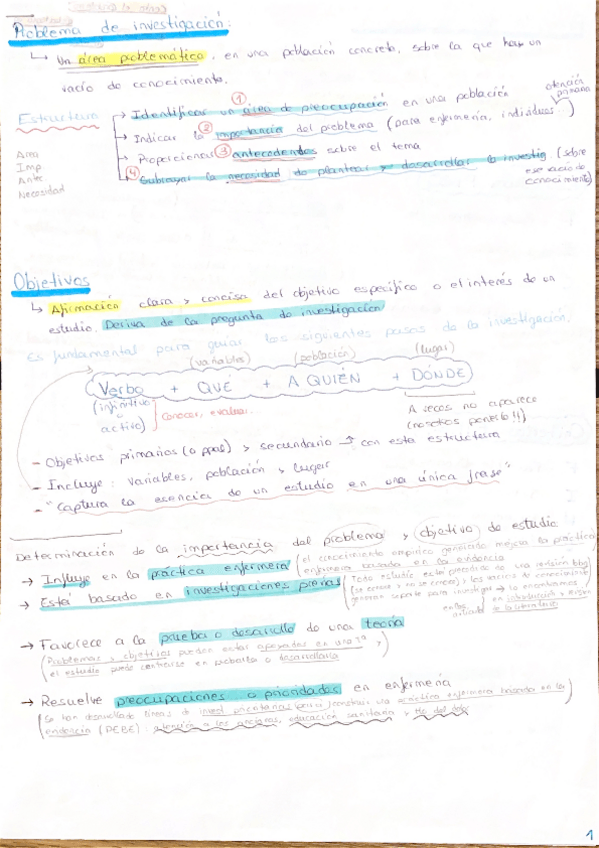 Problema de investigación:
↳ Un área problemática, en una población concreta, sobre la que hay un
vacío de conocimiento.
Estructura
→ Identificar un ① área de preocupación en una población
atención primaria
→ Indicar la ② importancia del problema (para enfermería, individuos...)
→ Proporcionar ③ antecedentes sobre el tema
④ Subrayar la necesidad de plantear y desarrollar la investig (sobre
ese vacío de
conocimiento)
Area
Imp
Antec
Necesidad
Objetivos
↳ Afirmación clara y concisa del objetivo específico o el interés de un
estudio. Deriva de la pregunta de investigación
Es fundamental para guiar los siguientes pasos de la investigación.
(variables) (población) (lugar)
Verbo + QUÉ + A QUIÉN + DÓNDE
(infinitivo
o
activo) Conocer, evaluar...
A veces no aparece
(nosotros ponerlo!!)
- Objetivos primarios (o ppal) y secundario → con esta estructura
- Incluye: variables, población y lugar
- "Captura la esencia de un estudio en una única frase"
Determinación de la importancia del problema y objetivo de estudio
→ Influye en la práctica enfermera (el conocimiento empírico generado mejora la práctica
enfermera basada en la evidencia
→ Está basado en investigaciones previas (Todo estudio está precedido de una revisión bbg
(se conoce y no se conoce) y los vacíos de conocimiento
generan soporte para investigar → lo encontramos
en introducción y revisión
de la literatura
→ Favorece a la prueba o desarrollo de una teoría
(Problemas y objetivos pueden estar apoyados en una tª y
el estudio puede centrarse en probarla o desarrollarla
→ Resuelve preocupaciones o prioridades en enfermería
(Se han desarrollado líneas de invest prioritarias para construir una práctica enfermera basada en la
evidencia (PEBE): atención a los ancianos, educación sanitaria y tto del dolor
1